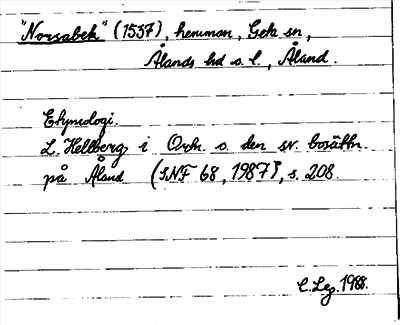 "Norsabek" (1537), hemman, Geta sn,
Ålands hd o. l., Åland.
Etymologi.
L. Hellberg i Ortn. o. den sv. bosättn.
på Åland (SNF 68, 1987), s. 208.
C. Leg. 1988.